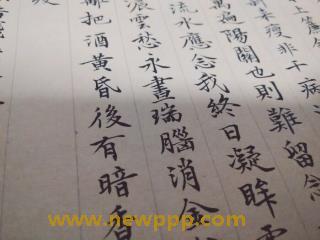 上簾
來瘦非干病
萬遍陽關也則難留念
流水應念我終日凝眸
濃雲愁永晝瑞腦消金
籬把酒黃昏後有暗香
www.newppp.com